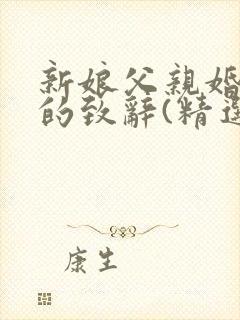 新娘父親婚
的致辭(精選
康生